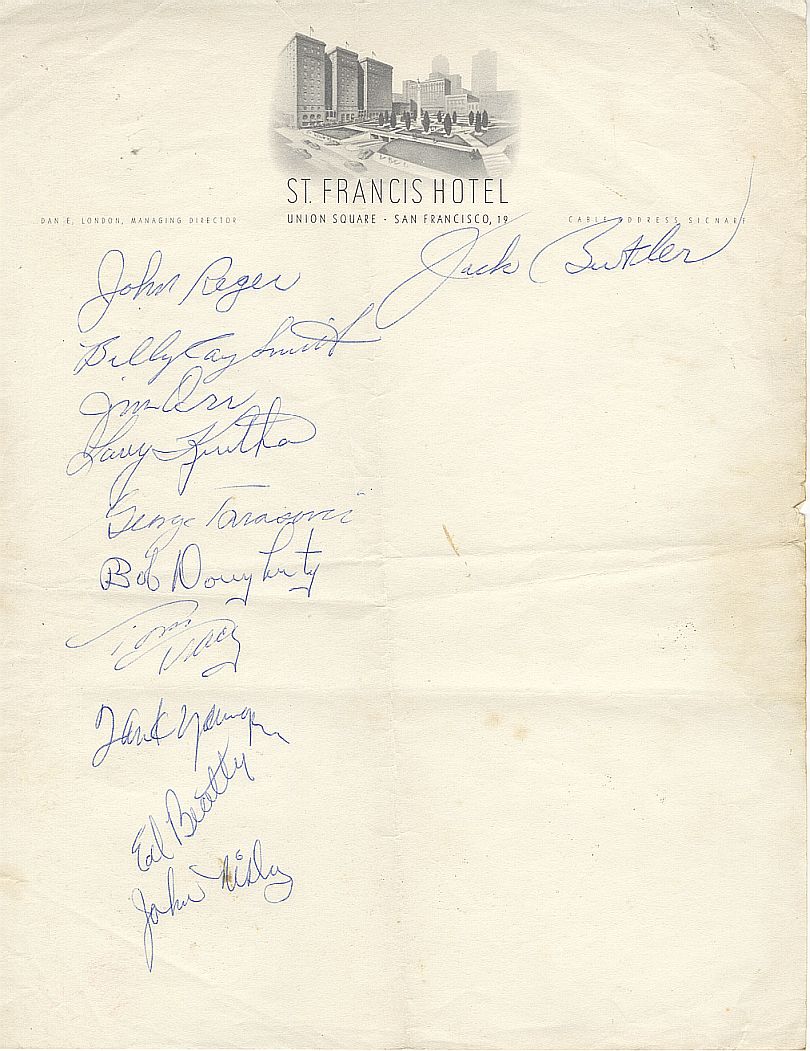 ST. FRANCIS HOTEL
DAN E. LONDON, MANAGING DIRECTOR
UNION SQUARE · SAN FRANCISCO, 19
CABLE ADDRESS SICNARF
Jack Butler
John Reger
Billy Ray Smith
Jim Orr
Gary
George Tarasovic
Bob Dougherty
Tom Tracy
Tank Younger
Ed Beatty
John Nisby